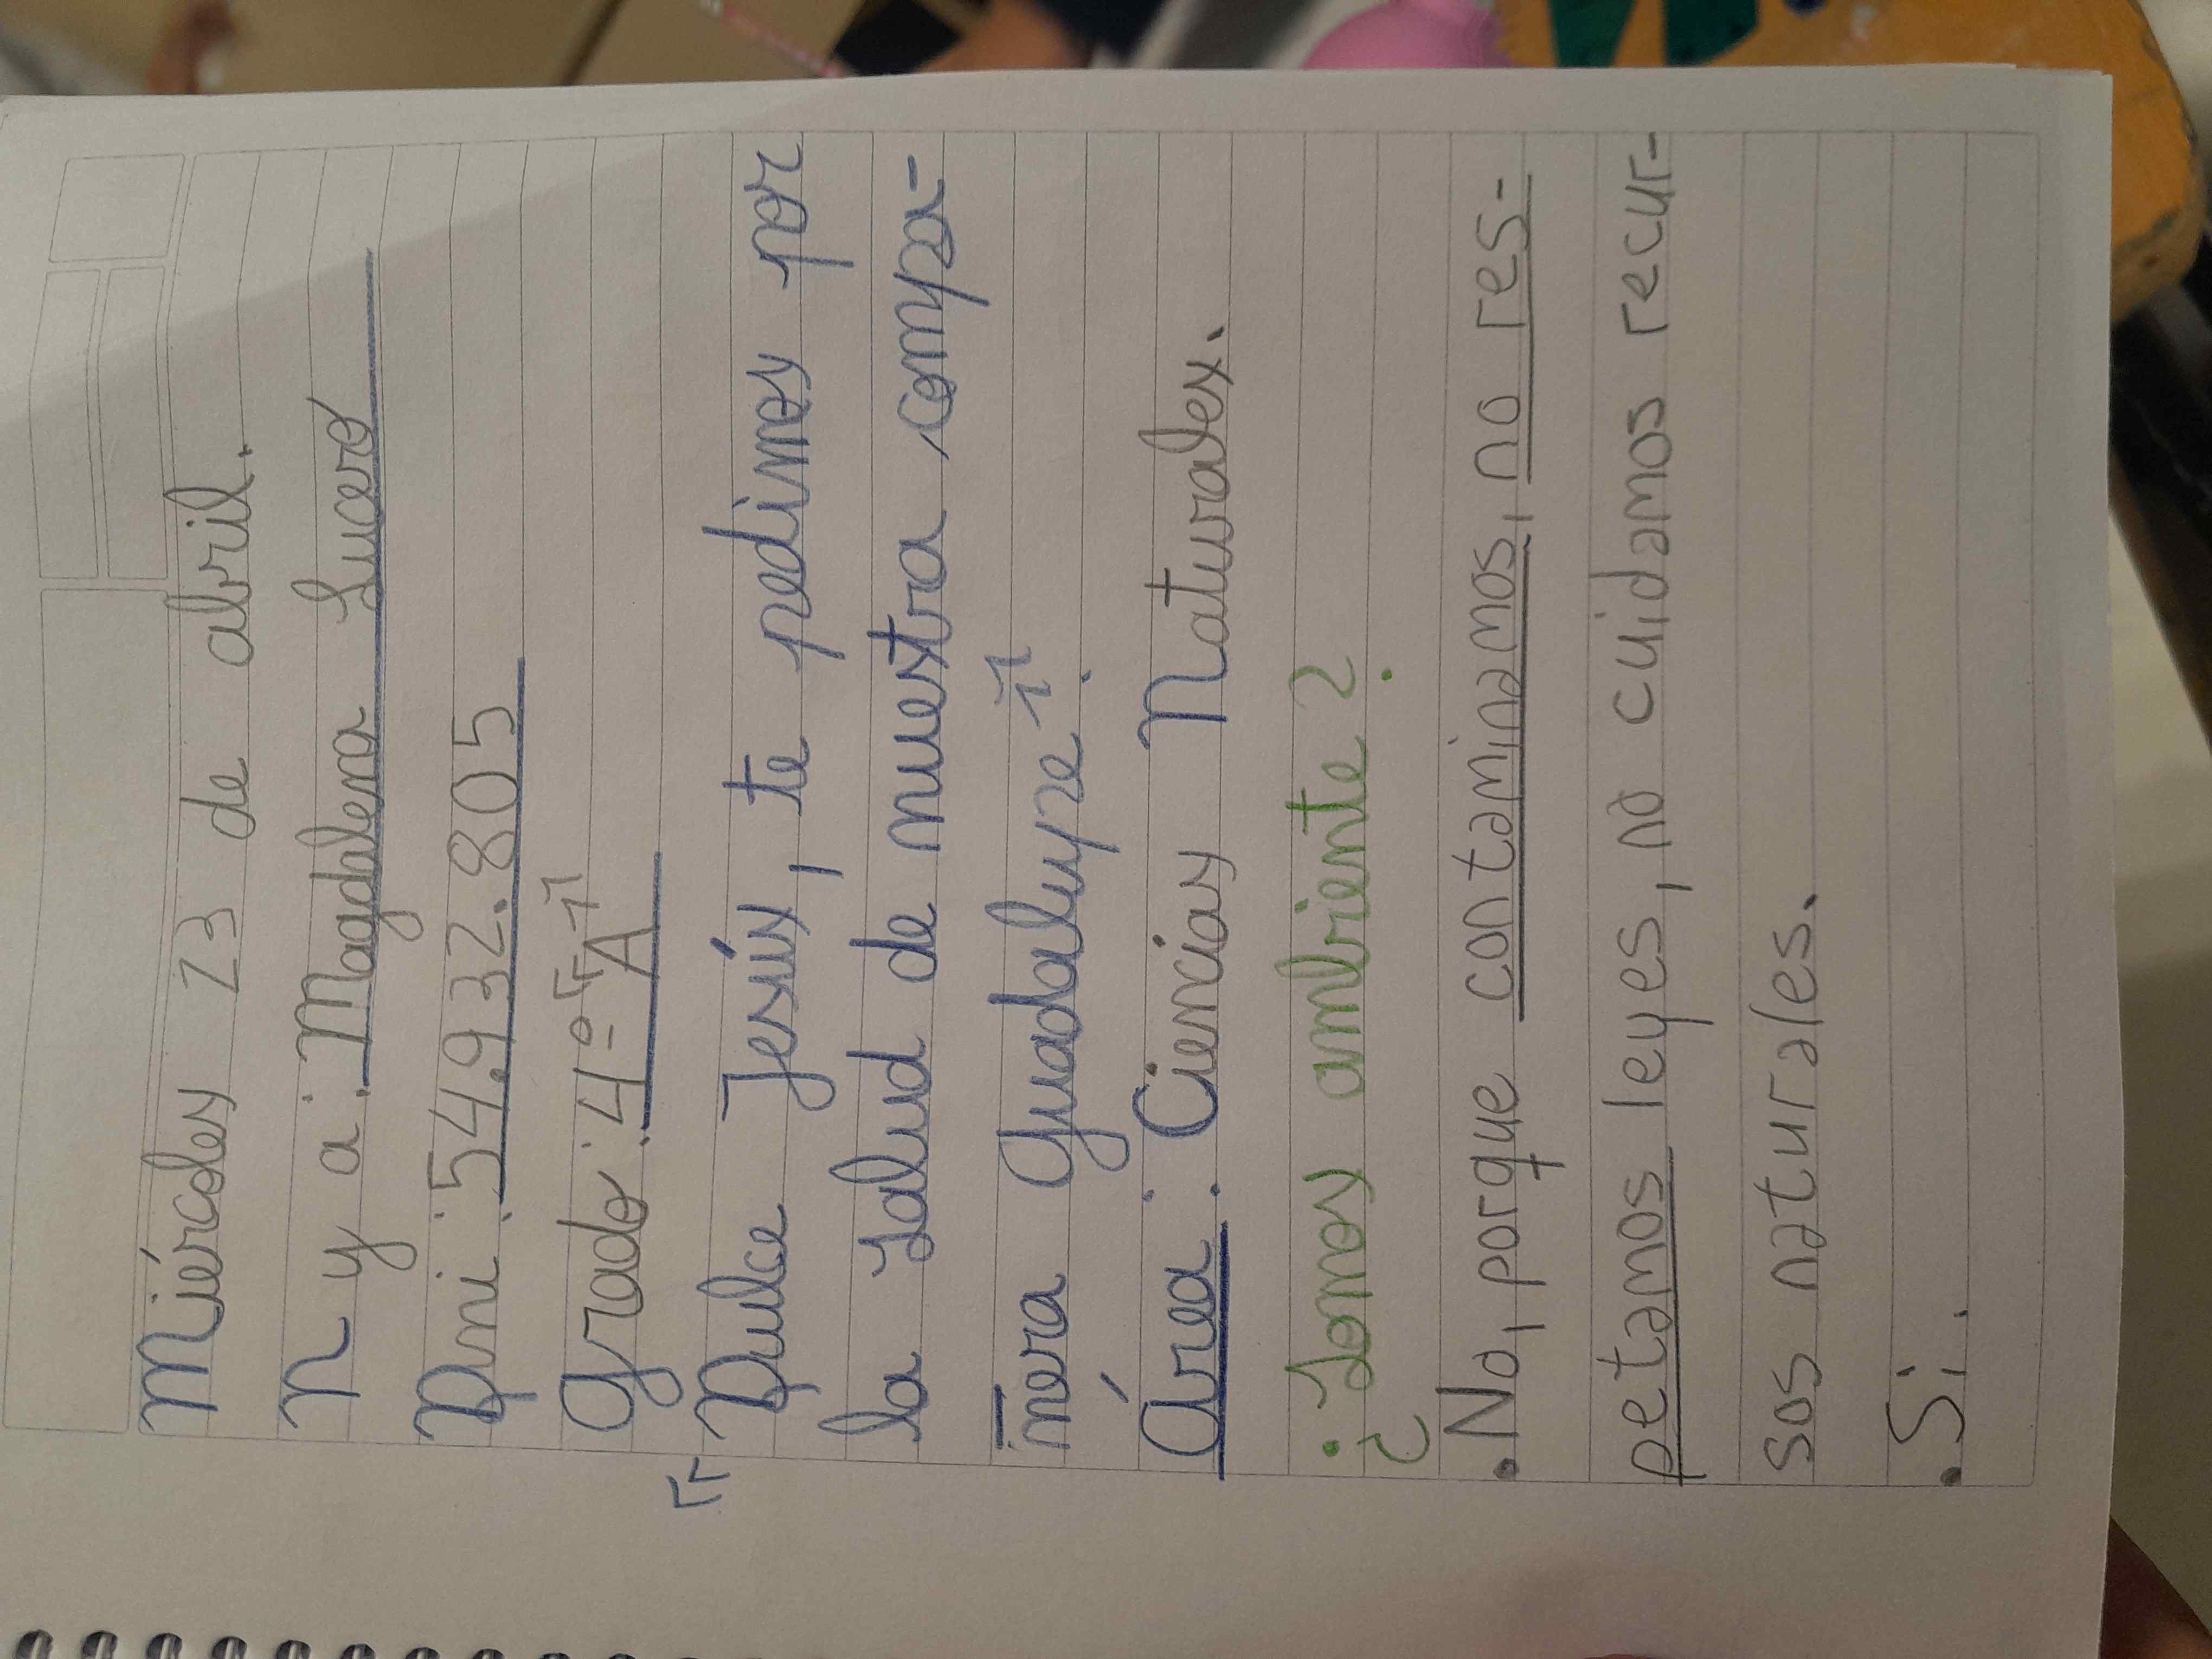 Miércoles 23 de abril.
N y a: Magdalena Lucero
Dni: 54.932.805
Grado: 4º "A"
"Dulce Jesús, te pedimos por
la salud de nuestra compa-
ñera Guadalupe".
Área: Ciencias Naturales.
¿Somos ambiente?
• No, porque contaminamos, no res-
petamos leyes, no cuidamos recur-
sos naturales.
• Si.